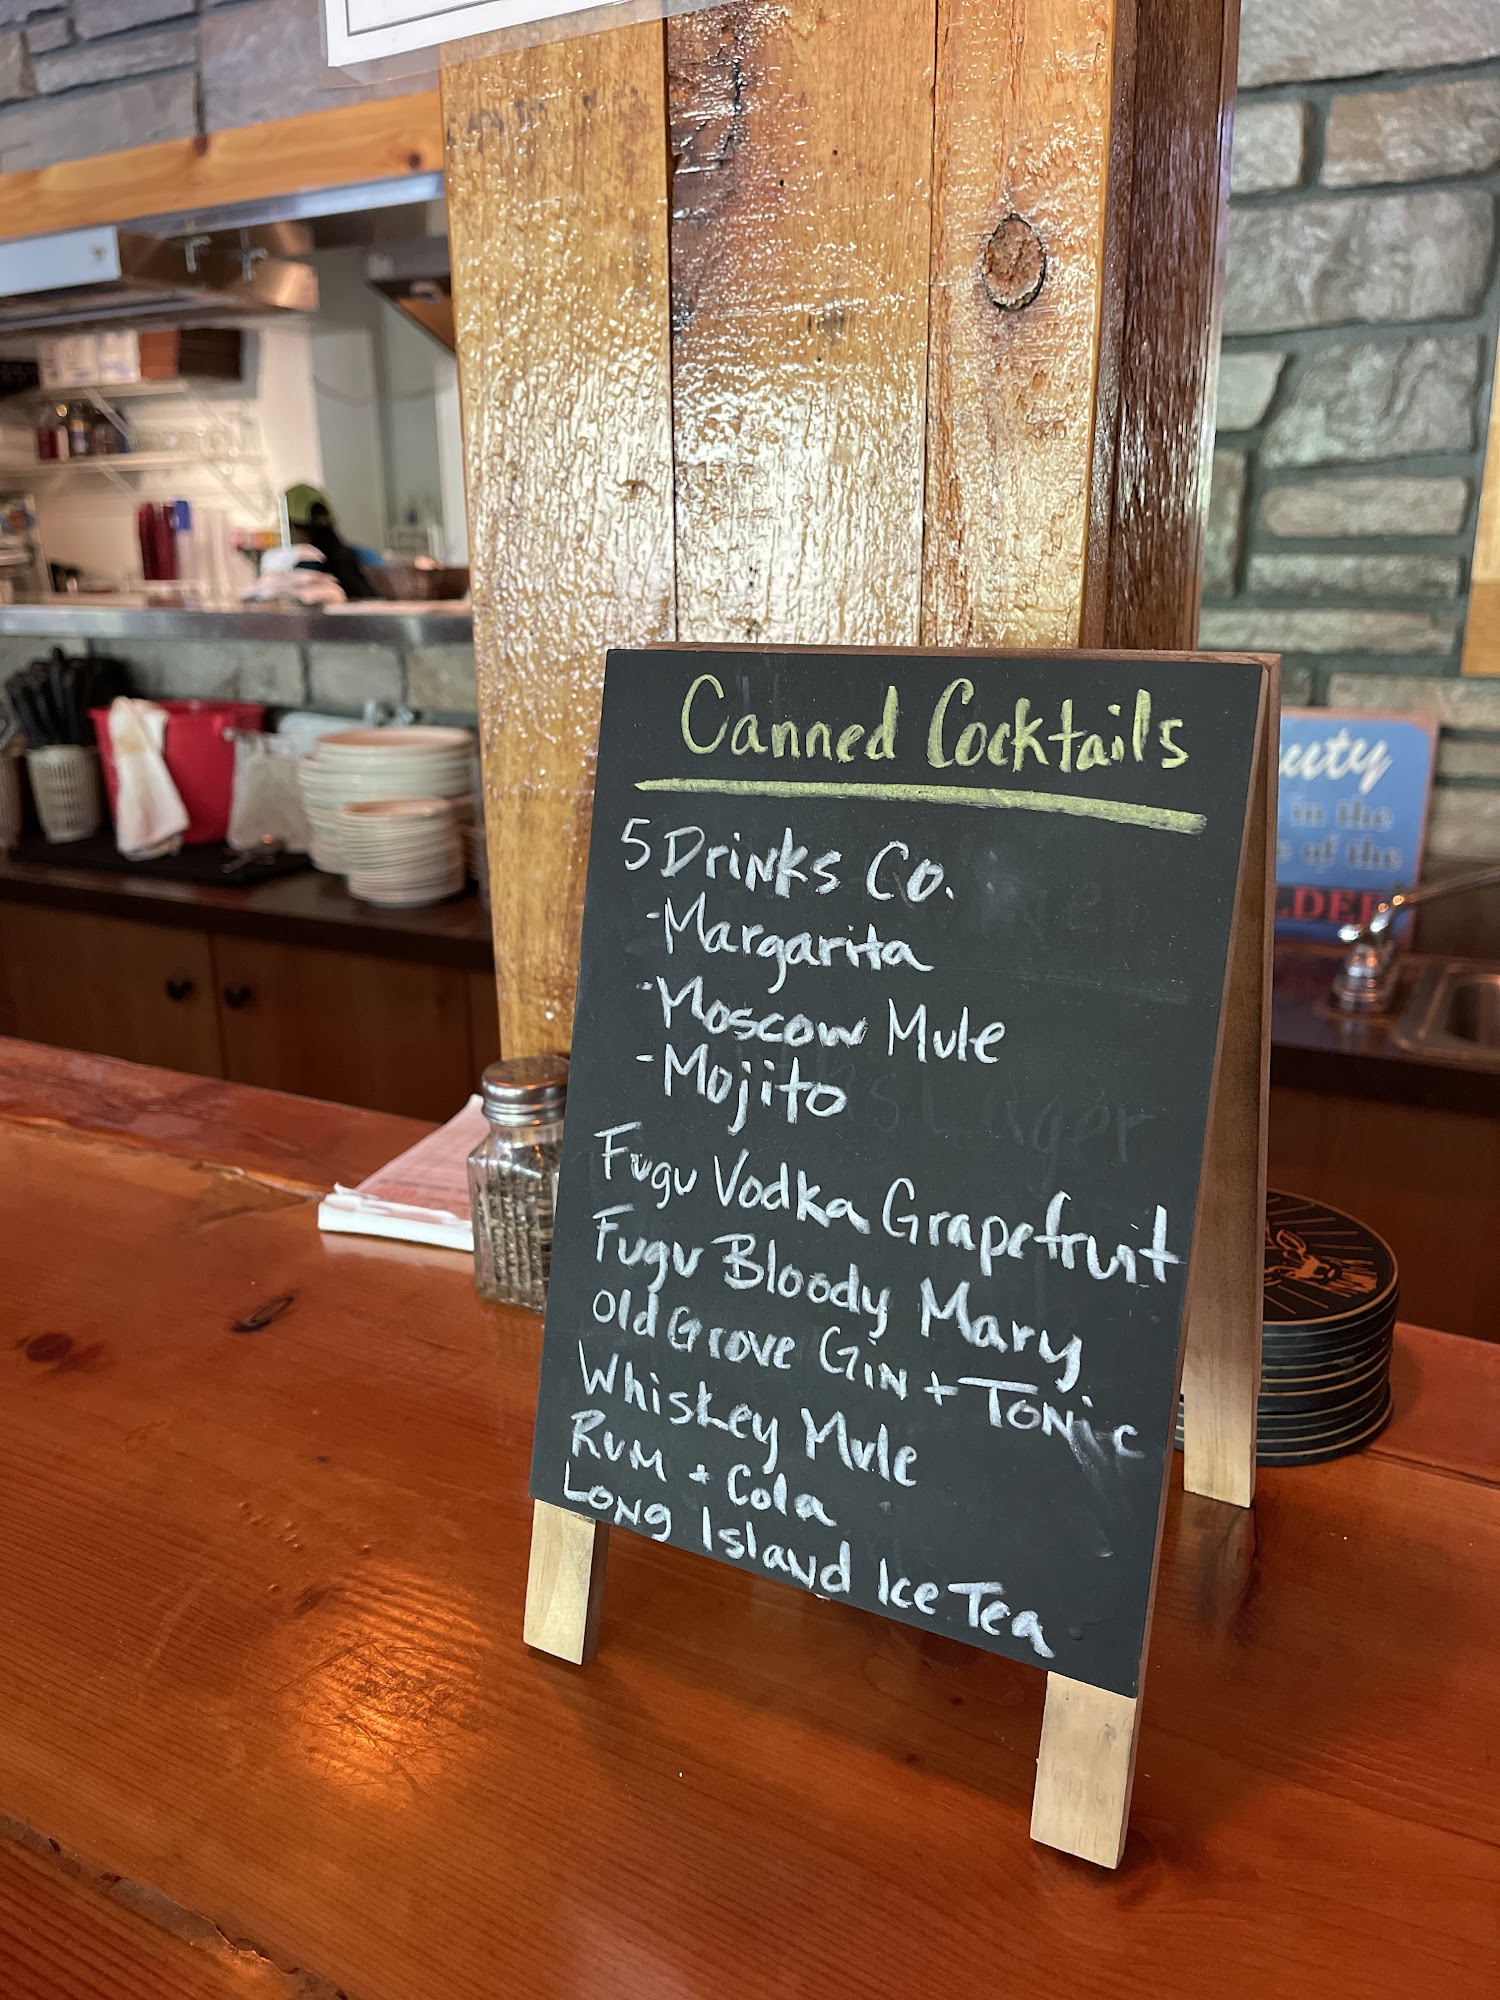 Canned Cocktails
5 Drinks Co.
-Margarita
-Moscow Mule
-Mojito
Fugu Vodka Grapefruit
Fugu Bloody Mary
Old Grove Gin + Tonic
Whiskey Mule
Rum + Cola
Long Island Ice Tea
in the
of the